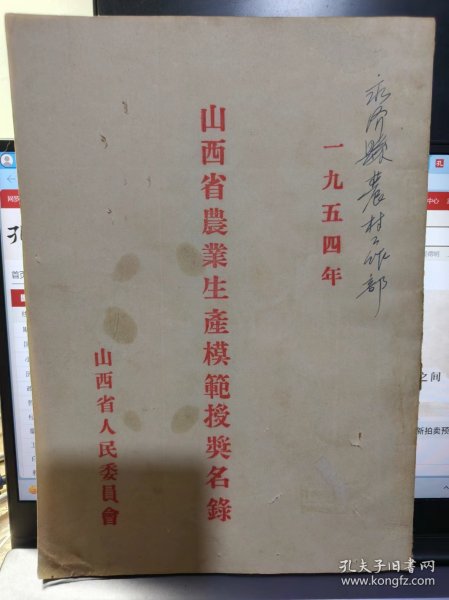 永济縣農村工作部
一九五四年
山西省農業生產模範授奬名錄
山西省人民委員會
孔夫子旧书网
www.kongfz.com